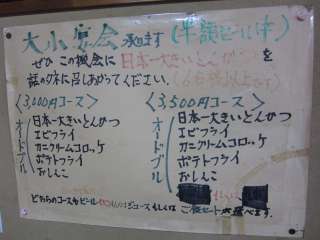 大小宴会 承ります (半額ビール付)
ぜひ この機会に 日本一大きいとんかつを
話のタネに召しあがってください。
〈3,000円コース〉
オードブル
日本一大きいとんかつ
エビフライ
カニクリームコロッケ
ポテトフライ
おしんこ
〈3,500円コース〉
オードブル
日本一大きいとんかつ
エビフライ
カニクリームコロッケ
ポテトフライ
おしんこ
どちらのコースもビール
ご飯セットが選べます。